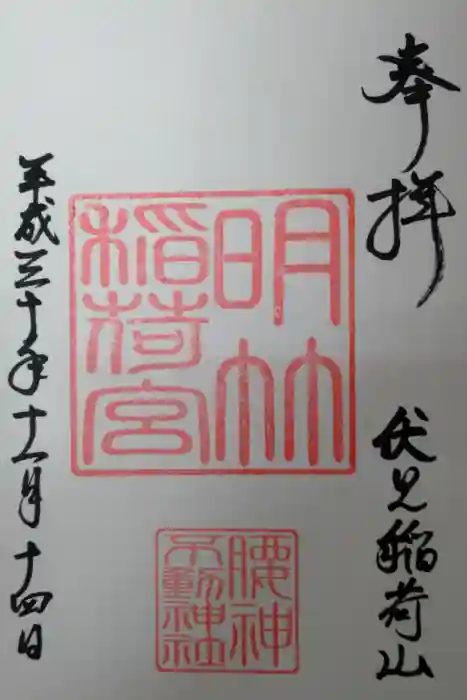 奉拝
伏見稲荷山
明竹
稲荷宮
腰神
不動神社
平成三十年十一月十四日